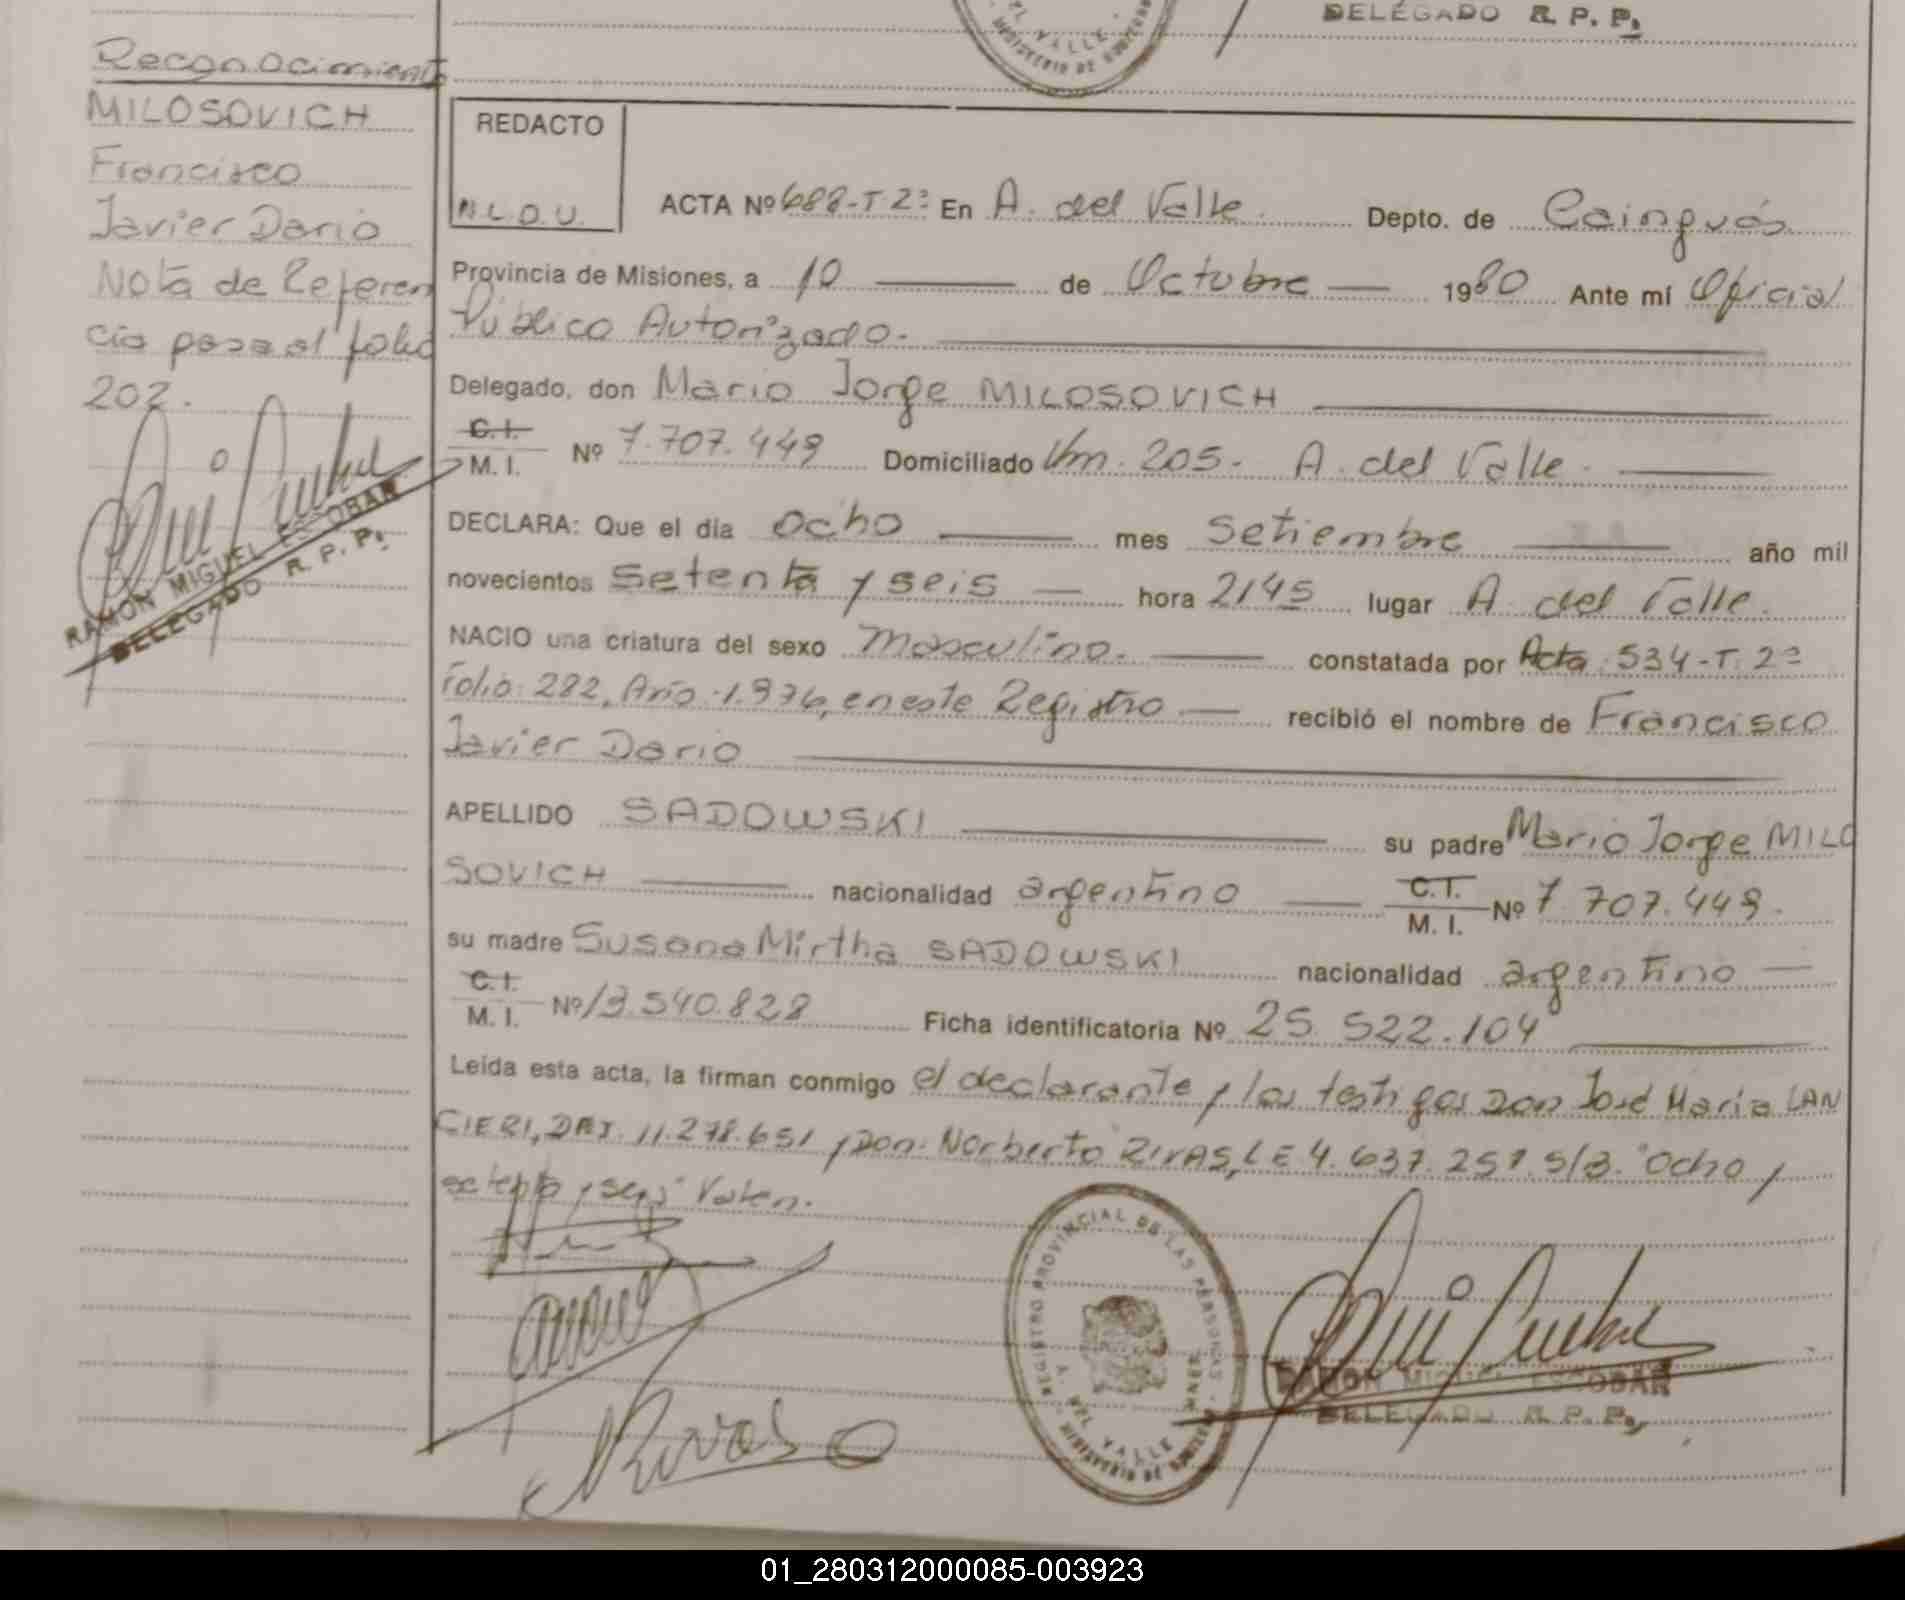 EL VALLE
MINISTERIO DE GOBIERNO
DELEGADO R. P. P.
Reconocimiento
MILOSOVICH
Francisco
Javier Dario
Nota de Referen
cia pasa al folio
202.
RAMON MIGUEL ESCOBAR
DELEGADO R. P. P.
REDACTO
N.L.D.U.
ACTA Nº 688-T-2º En A. del Valle Depto. de Cainguás
Provincia de Misiones, a 10 de Octubre 1980 Ante mí Oficial
Público Autorizado.
Delegado, don Mario Jorge MILOSOVICH
C.I.
M. I. Nº 7.707.449 Domiciliado Km. 205- A. del Valle.
DECLARA: Que el día ocho mes Setiembre año mil
novecientos setenta y seis hora 2145 lugar A. del Valle.
NACIO una criatura del sexo Masculino. constatada por Acta: 534-T. 2º
Folio: 282, Año: 1.976, en este Registro recibió el nombre de Francisco
Javier Dario
APELLIDO SADOWSKI su padre Mario Jorge MILO
SOVICH nacionalidad argentino C.I. M. I. Nº 7.707.449.
su madre Susana Mirtha SADOWSKI nacionalidad argentino
C.I.
M. I. Nº 13.540.828 Ficha identificatoria Nº 25.522.104
Leída esta acta, la firman conmigo el declarante y los testigos Don José Maria LAN
CIERI, DNI. 11.278.651 y Don: Norberto RIVAS, LE 4.637.257. S/B. "Ocho y
setenta y seis" Valen.
REGISTRO PROVINCIAL DE LAS PERSONAS
A. DEL VALLE
RAMON MIGUEL ESCOBAR
DELEGADO R. P. P.
01_280312000085-003923